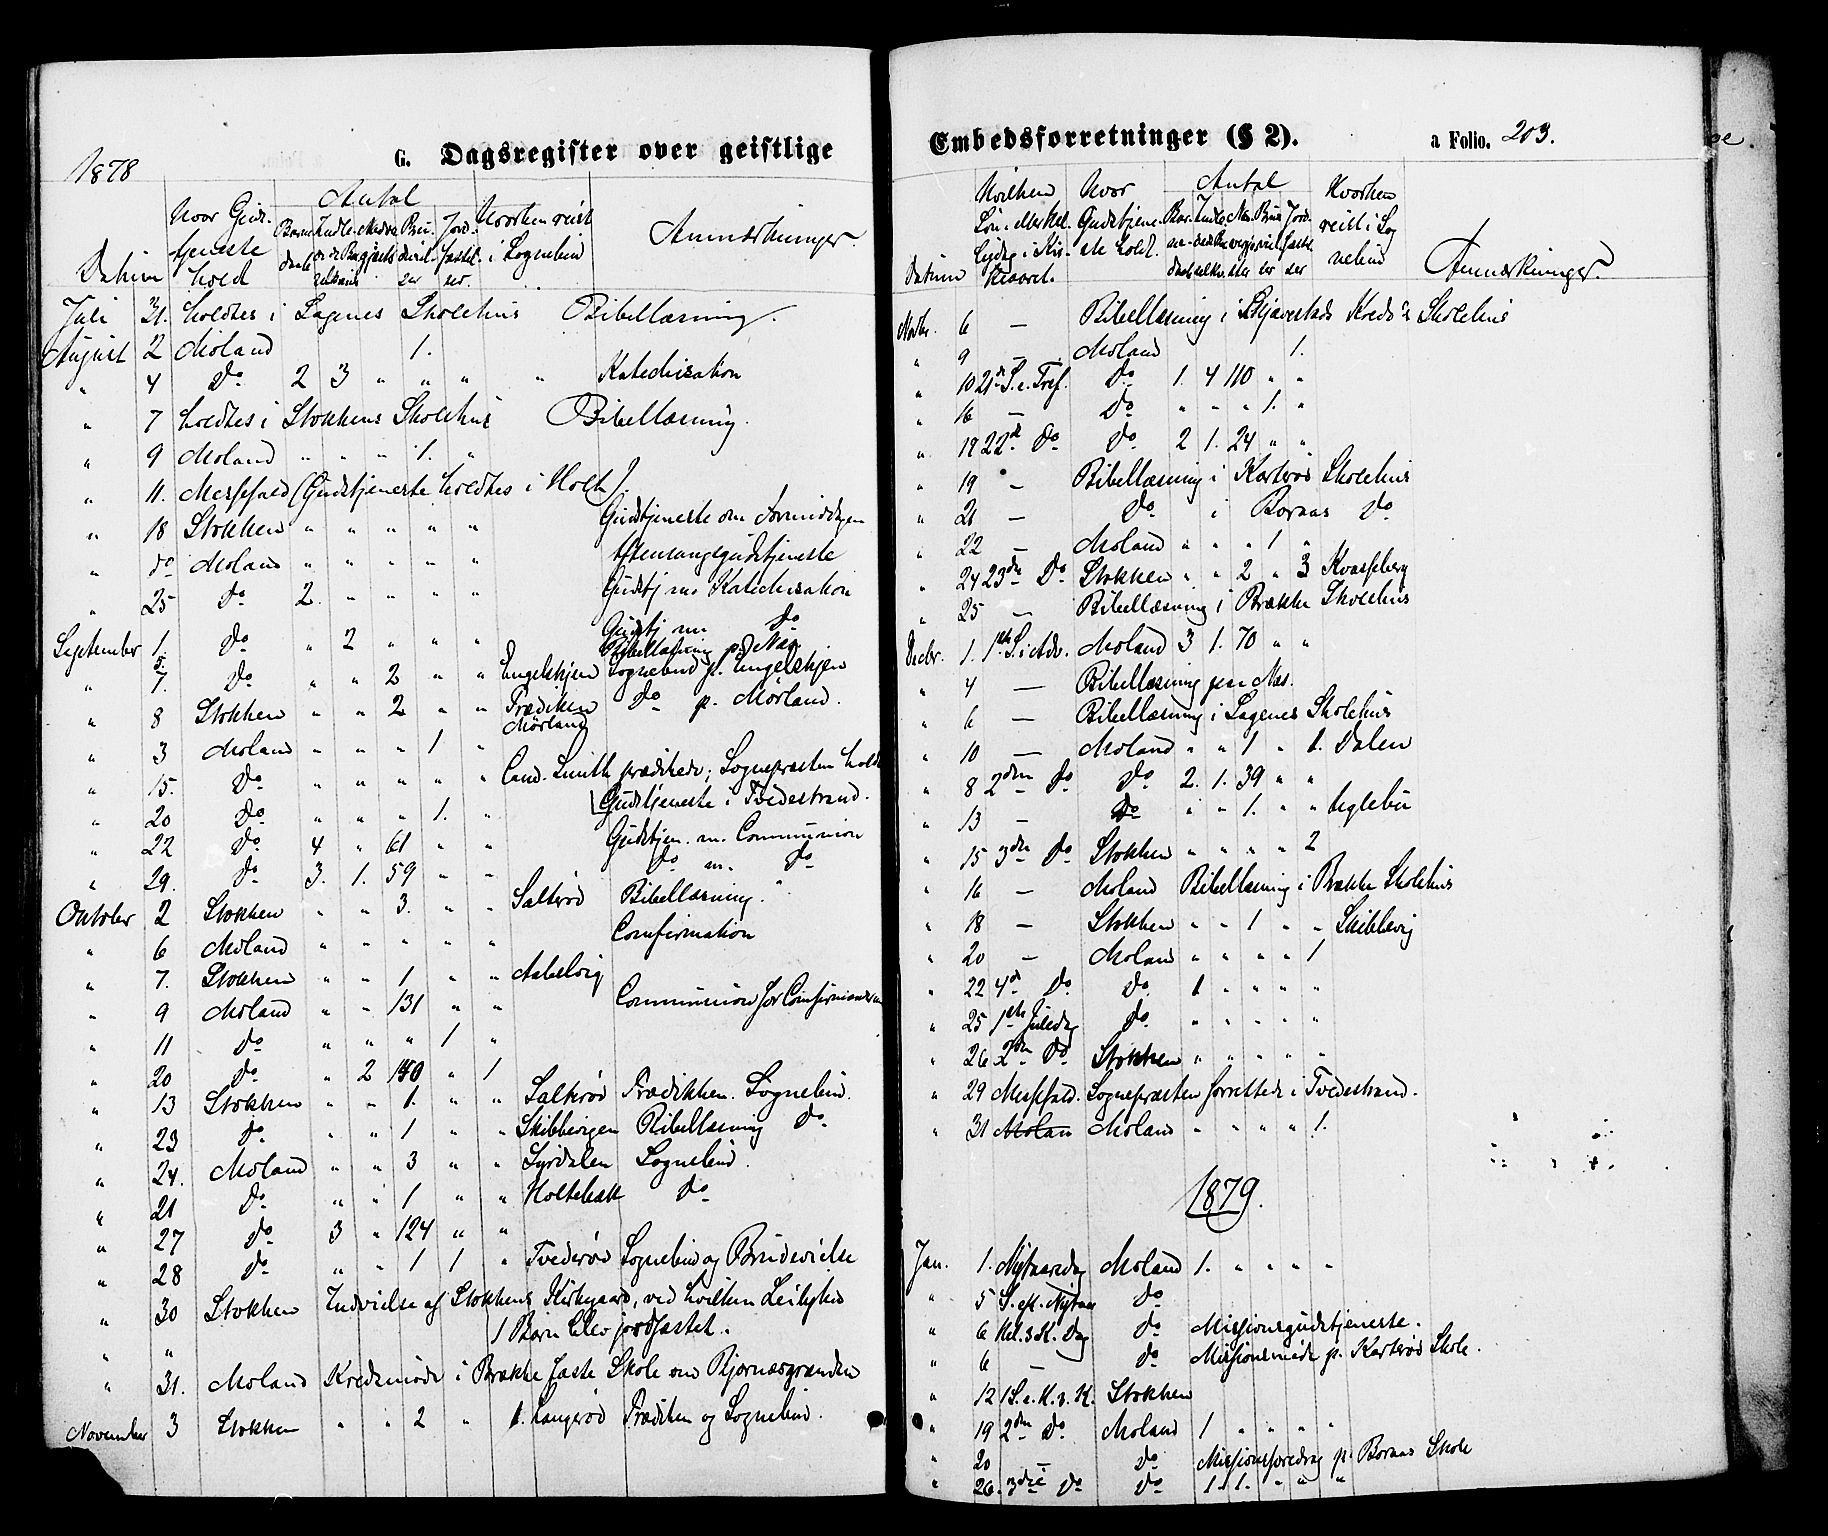 1878
G. Dagsregister over geistlige
Antal
Hvor Guds-
tjeneste
hold
Datum
i Sognebud
Anmærkninger.
Juli 31. holdtes i Sagenes Skolehus Bibellæsning.
August 2 Moland 1.
" 4 Do 2 3 " " " " Katechisation
" 7 holdtes i Stokkens Skolehus Bibellæsning.
" 9 Moland " " " 1. "
" 11. Messefald (Gudstjeneste holdtes i Holt).
" 18 Stokken " " " " " Gudstjeneste om Formiddagen
" do Moland " " " " " Aftensangsgudstjeneste
" 25 Do 2. " " " " Gudstj m. Katechisation
September 1. Do " 2 " " " Gudstj m. Do
Bibellæsning p. Næs
" 7. Do " " 2 " " Engelskjøn Sognebud p. Engelskjøn
" 8 Stokken " " 2 " " Prædiken Do p. Mørland.
Mørland
" 3 Moland " " " 1 "
" 15. Do " " " " " Cand. Smith prædikede; Sognepræsten holdt
Gudstjeneste i Tvedestrand.
" 20 Do " " " 1. "
" 22 Do 4 " 61 " " Gudstjen. m. Communion
" 29. Do 3. 1. 59 " " Do m. Do
October 2 Stokken " " 3. " " Salterød Bibellæsning.
" 6 Moland " " " " " Comfirmation
" 7. Stokken " " 1 " " Aabelvig
" 9 Moland " " 131 " " Communion for Comfirmanderne
" 11 Do " " " 1 "
" 20 Do " 2 " 1
" 13 Stokken " " 1. " " Salterød Prædikken. Sognebud.
" 23 Do " " 1 " " Skibbvigen Bibellæsning Do
" 24. Moland " " 3 " " Syrdalen Sognebud.
" 21 Do " " 1 " " Holtebæk Do
" 27 Do 3 " 124 " "
" 28 Do " " 1 1 " Tvederød Sognebud og Brudevielse
" 30 Stokken Indvielse af Stokkens Kirkegaard, ved hvilken Leilighed
" " 1 Barn blev jordfæstet.
" 31. Moland Kredsmøde i Brække faste Skole om Bjornæsgrænden
November 3 Stokken " " 2 " 1. Langerød Prædiken og Sognebud.
Embedsforretninger (§ 2).
a Folio. 203.
Hvilken Hvor Antal Hvorhen
Datum
Anmærkninger.
Novbr. 6 — Bibellæsning i Skjævestads Kreds's Skolehus
" 9 — Moland 1.
" 10 21de S. e. Tref. Do 1. 4 110 " "
" 16 — Do " " " 1. "
" 22de Do Do 2 1. 24 " "
" 19 — Bibellæsning i Karterøs Skolehus
" 21 — Do i Boraas Do
" 22 — Moland " " " 1 "
" 24 23de Do Stokken " " 2 " 3 Kvasseberg
" 25 — Bibellæsning i Brække Skolehus
Decbr. 1. 1ste S. i Adv. Moland 3 1. 70 " "
" 4 — Bibellæsning paa Næs.
" 6 — Bibellæsning i Sagenes Skolehus
" 10 — Moland " " 1 " 1. Dalen
" 8 2den Do Do 2. 1. 39 " "
" 13 — Do " " 1. " " Uglebu
" 15 3die Do Stokken " " " " 2
" 16 — Moland Bibellæsning i Brække Skolehus
" 18 — Stokken " " 1 " " Skibbvig
" 20 — Moland " " " " 1
" 22 4de Do Do 1 " " " "
" 25 1ste Juledag Do " " " " "
" 26 2den Do Stokken " " " " "
" 29 Messefald. Sognepræsten forrettede i Tvedestrand.
" 31 Molan Moland " " " " 1.
1879.
Jan. 1. Nytaarsdag Moland 1. " " " "
" 5 S. eft. Nytaar Do
" 6 Hel. 3 K. Dag Do Missionsgudstjeneste.
" 6 — Do Missionsmøde p. Karterøs Skole.
" 12 1 S. e. H. 3. K. Stokken
" 19 2den Do Moland 1 " " " "
" 20 — Do Missionsforedrag p. Boraas Skole
" 26. 3die Do Do 1 1. " " "